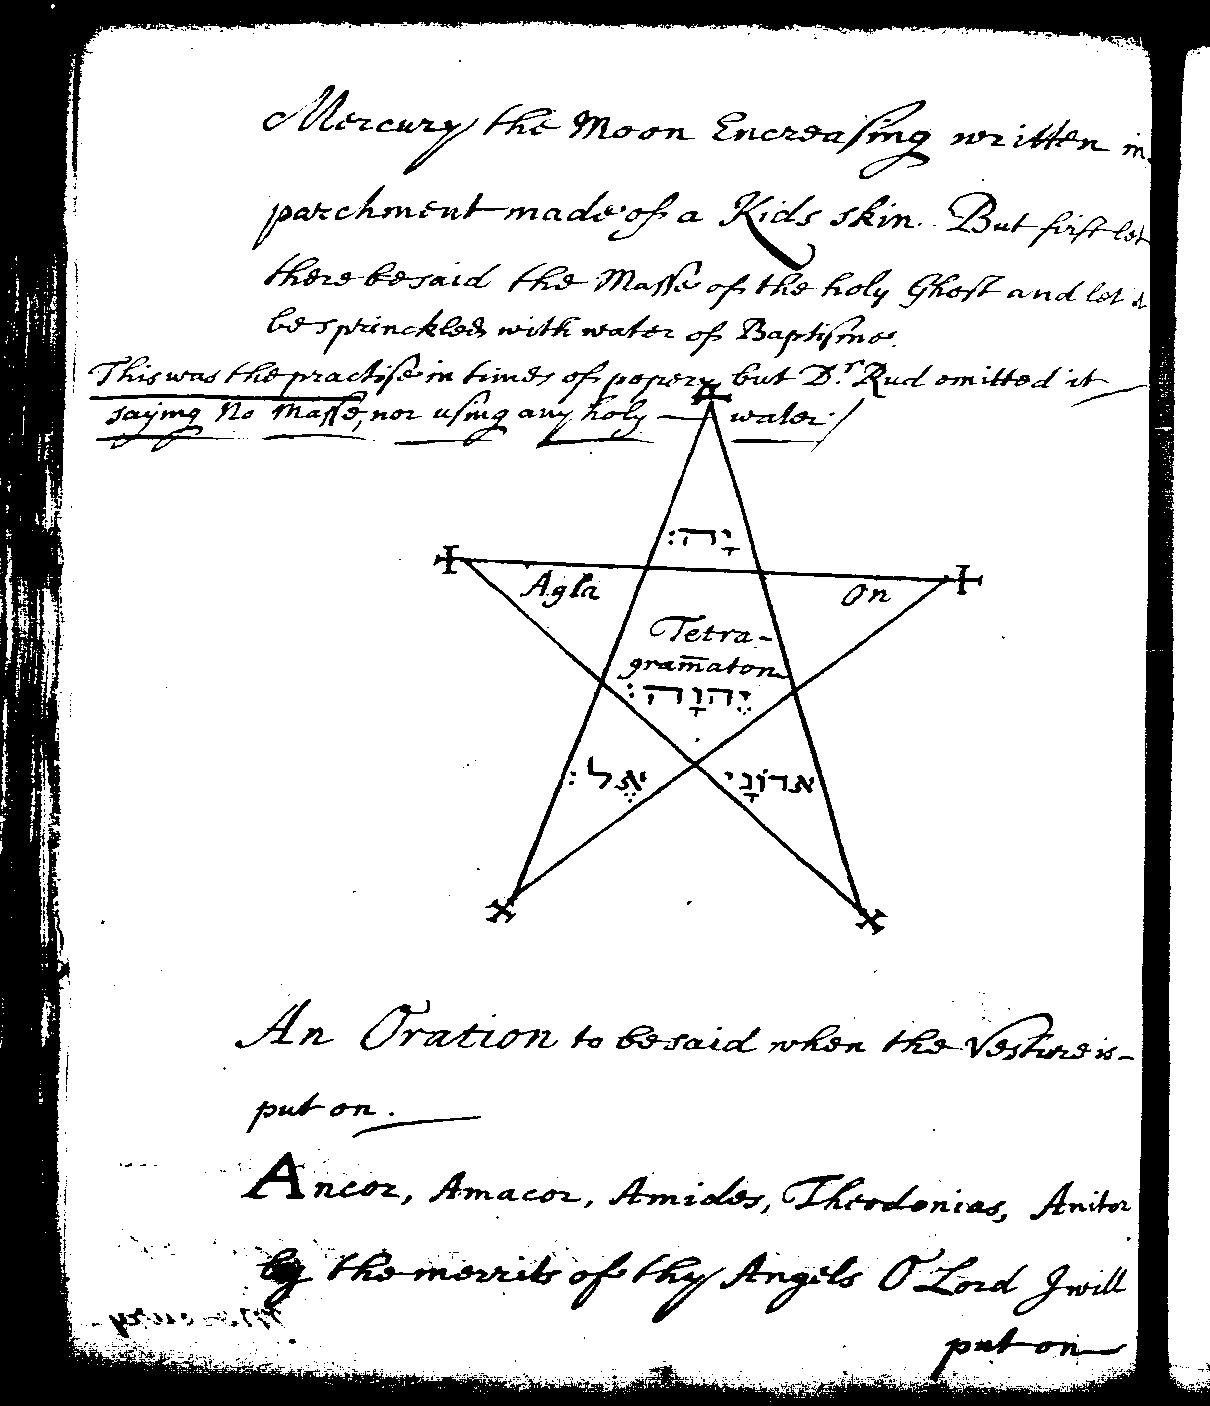 Mercury the Moon Encreasing written in
parchment made of a Kids skin. But first let
there be said the Masse of the holy Ghost and let it
be sprinckled with water of Baptisme.
This was the practise in times of popery but Dr. Rud omitted it
saying No Masse, nor using any holy — water./
יָה:
Agla
On
Tetra-
gram̄aton
יֱהוָֹה:
אֱל:
ארוֹנָי
An Oration to be said when the Vesture is-
put on.
Ancor, Amacor, Amides, Theodonias, Anitor
by the merrits of thy Angels O Lord J will
put on